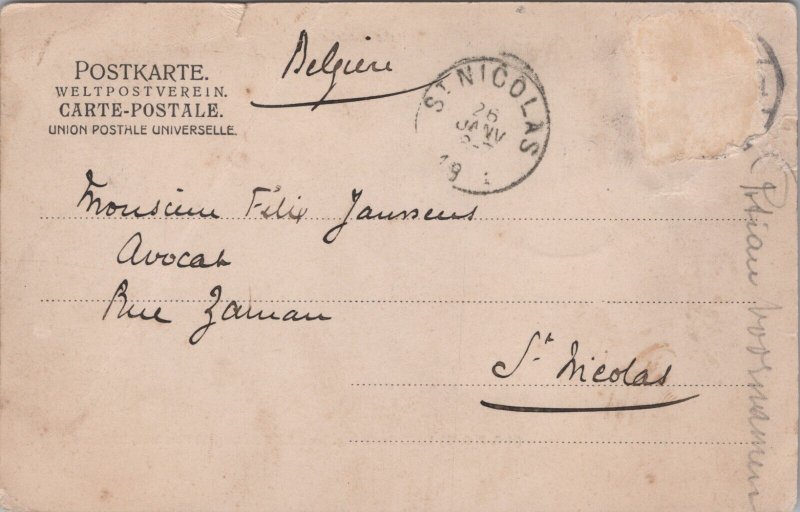 POSTKARTE.
WELTPOSTVEREIN.
CARTE-POSTALE.
UNION POSTALE UNIVERSELLE.
Belgien
ST NICOLAS
26
JANV
19
Monsieur Félix Janssens
Avocat
Rue Zaman
St Nicolas
voornamen